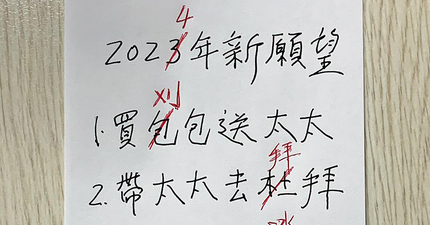 4
2023年新願望
刈
1.買包包送太太
拜
2.帶太太去杜拜